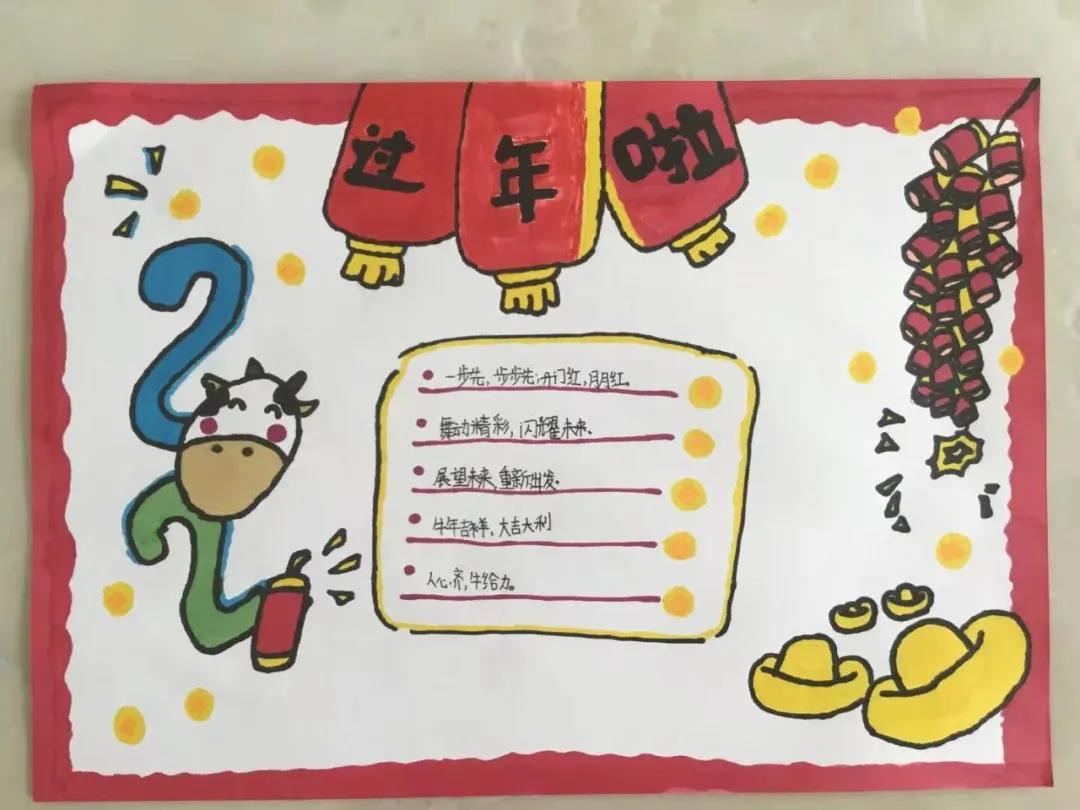 过年啦
一步先，步步先；开门红，月月红。
舞动精彩，闪耀未来。
展望未来，重新出发。
牛年吉祥，大吉大利
人心齐，牛给力。